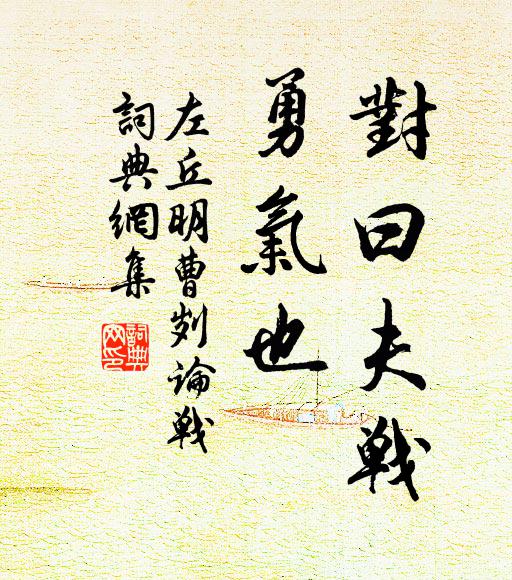 對曰夫戰
勇氣也
左丘明曹刿論戰
詞典網集
詞典网印